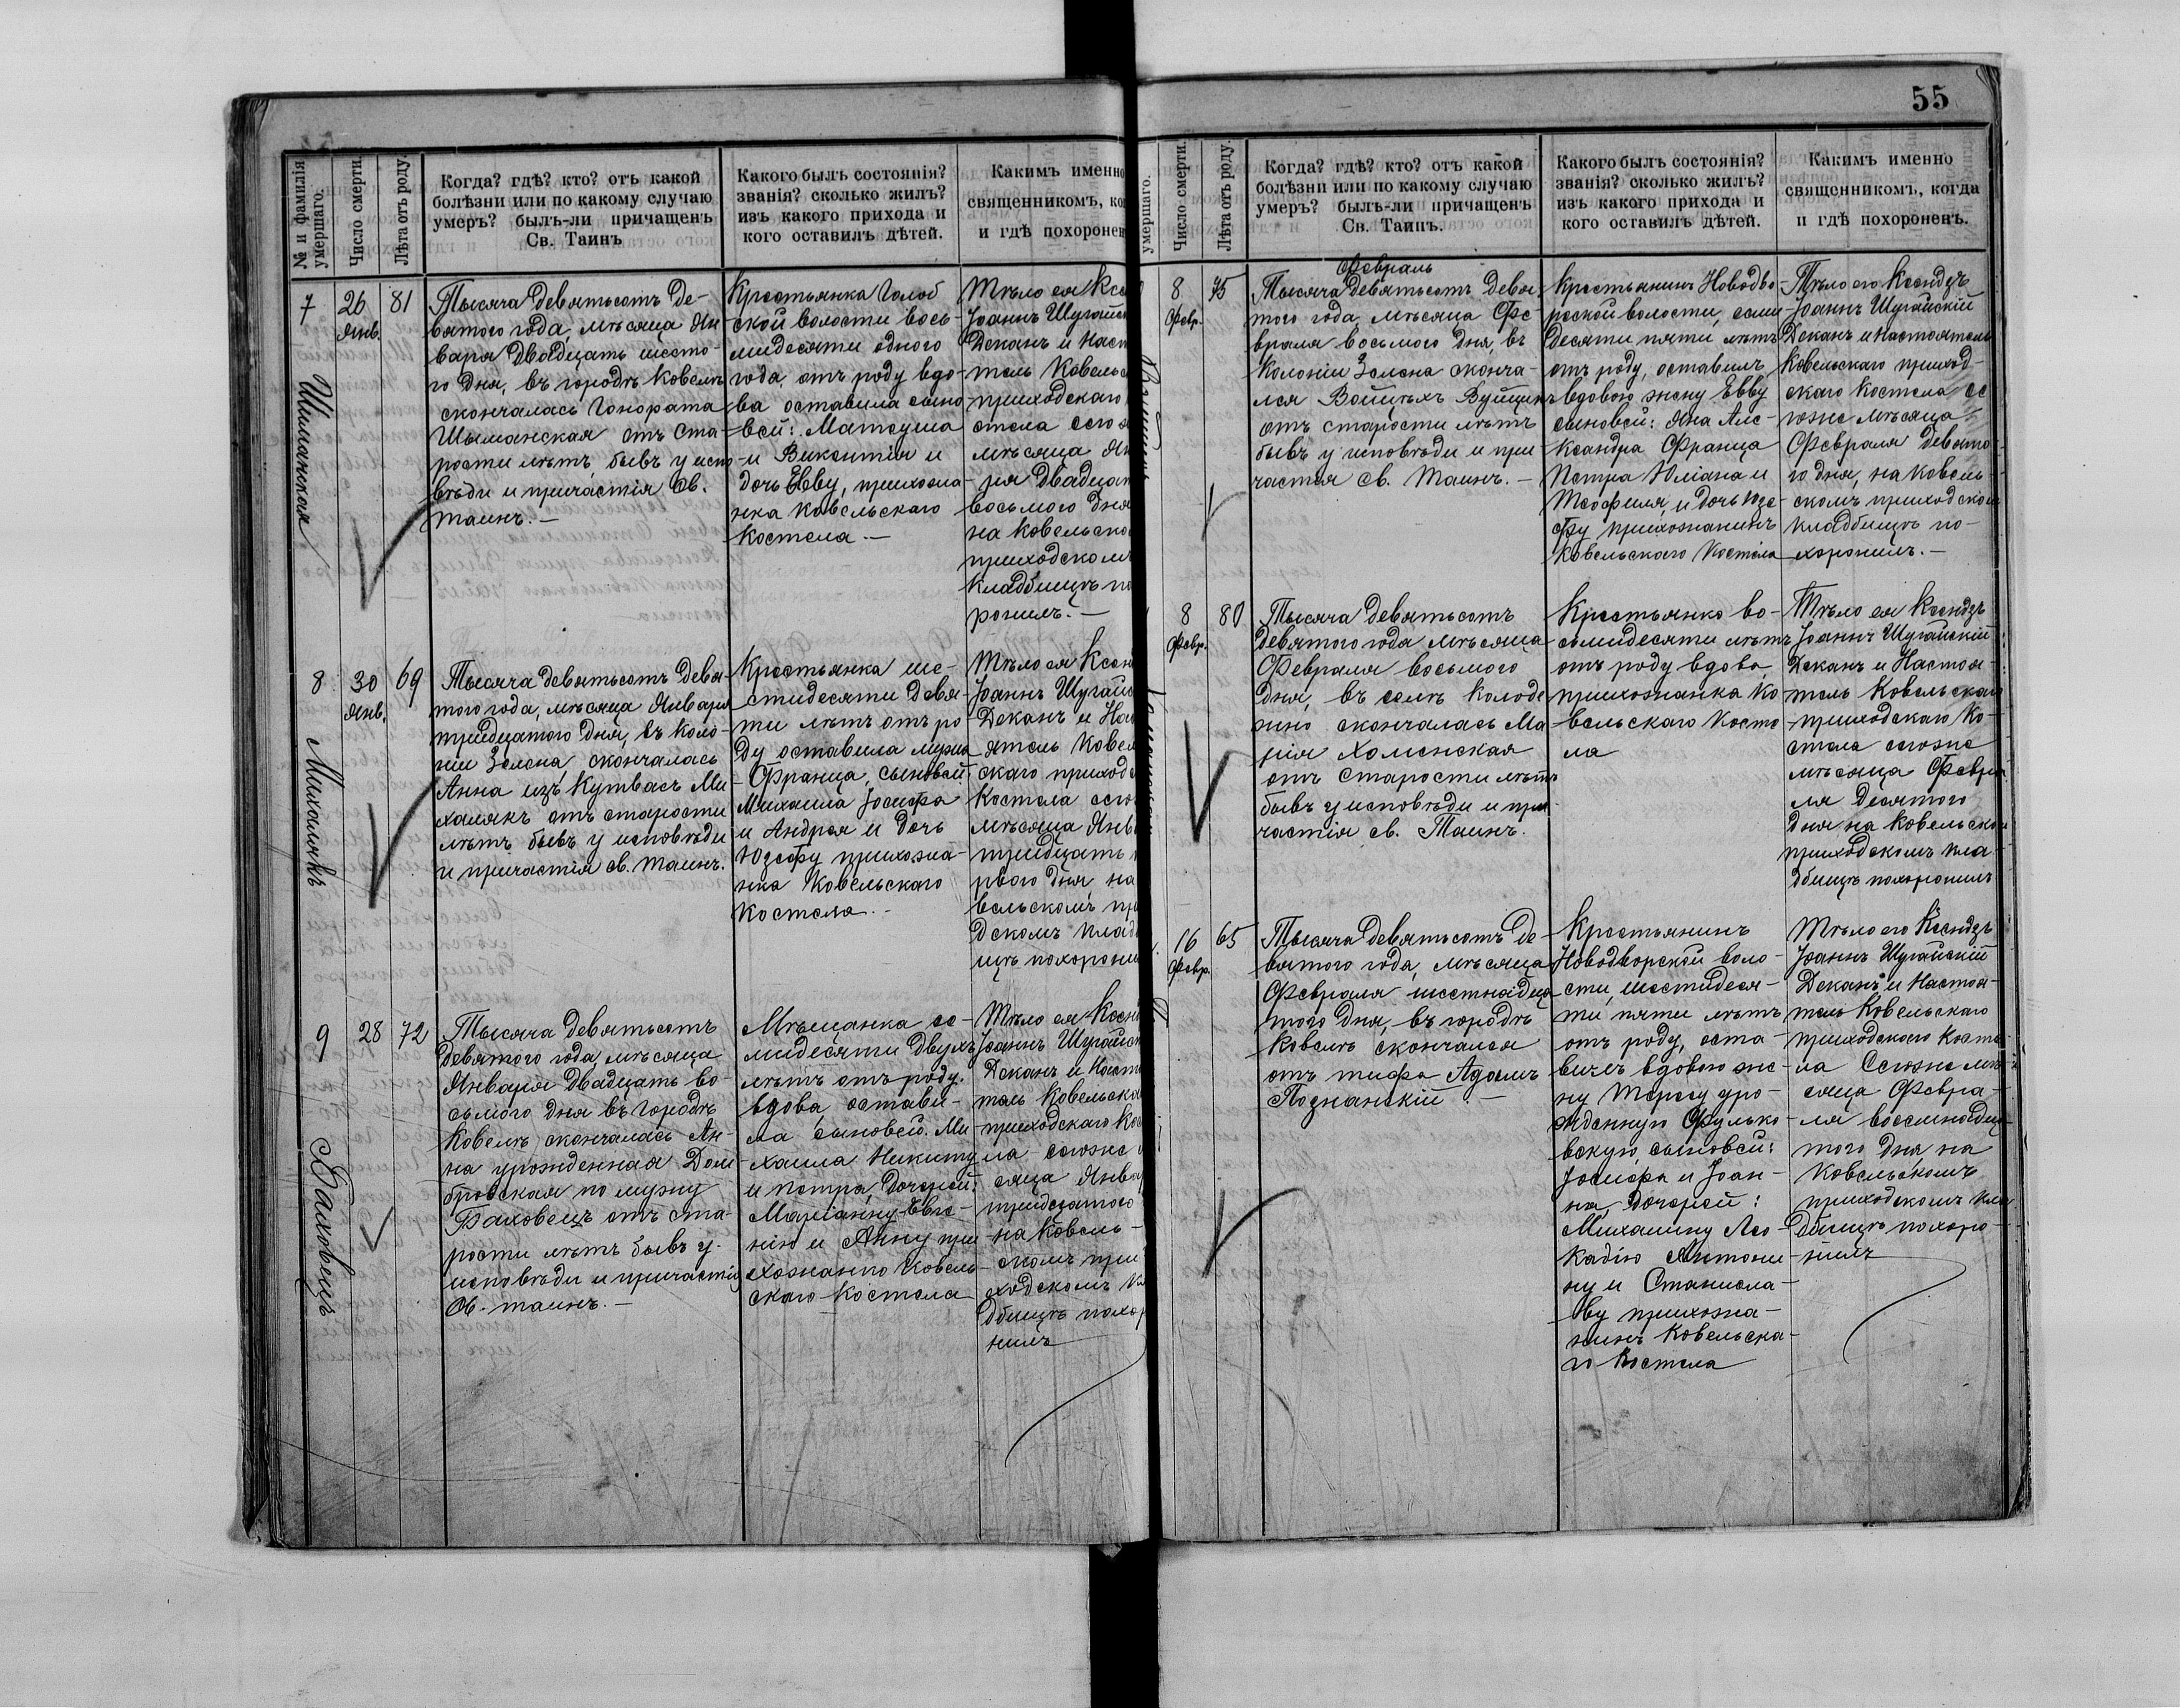 55
№ и фамилія
умершаго.
Число смерти.
Лѣта отъ роду.
Когда? гдѣ? кто? отъ какой
болѣзни или по какому случаю
умеръ? былъ-ли причащенъ
Св. Таинъ
Какого былъ состоянія?
званія? сколько жилъ?
изъ какого прихода и
кого оставилъ дѣтей.
Какимъ именно
священникомъ, ко
и гдѣ похоронен
7
Шиманская
26
Янв.
81
Тысяча девятьсотъ де-
вятого года, мѣсяца Ян
варя двадцать шесто-
го дня, въ городѣ Ковелѣ
скончалась Гонората
Шыманская отъ ста-
рости лѣтъ, бывъ у испо
вѣди и причастія Св.
таинъ.-
Крестьянка Голоб
ской волости вось-
мидесяти одного
года, отъ роду вдо-
ва оставила сыно
вей: Матеуша
и Викентія и
дочь Евву, прихожа-
нка Ковельскаго
костела.-
Тѣло ея Ксе
Іоаннъ Шугайс
Деканъ и Наст
тель Ковельс
приходскаго
стела сего ж
мѣсяца Ян
ря двадцат
восьмого дня
на Ковельско
приходскомъ
кладбищѣ по
ронилъ.-
8
Михалякъ
30
Янв.
69
Тысяча девятьсотъ девя-
того года, мѣсяца Января
тридцатого дня, въ коло-
ніи Зелена, скончалась
Анна изъ Кутвасъ Ми
халякъ отъ старости
лѣтъ бывъ у исповѣди
и причастія св. таинъ.
Крестьянка ше-
стидесяти девя-
ти лѣтъ отъ ро-
ду оставила мужа
Франца, сыновей
Михаила Іосифа
и Андрея и дочь
Юзефу прихожа-
нка Ковельскаго
костела.-
Тѣло ея Ксен
Іоаннъ Шугайс
Деканъ и Нас
ятель Ковел
скаго приходс
Костела сего
мѣсяца Янв
тридцать
рвого дня, на
вельскомъ пр
дскомъ клад
щѣ похорони
9
Баховецъ
28
72
Тысяча девятьсотъ
девятого года, мѣсяца
Января двадцать во-
сьмого дня въ городѣ
Ковелѣ скончалась Ан-
на урожденная Дом
бровская по мужу
Баховецъ отъ ста-
рости лѣтъ бывъ у
исповѣди и причастія
Св. таинъ.-
Мѣщанка се-
мидесяти двухъ
лѣтъ отъ роду.
вдова, остави-
ла сыновей. Ми
хаила Никиту
и Петра, дочерей:
Маріанну Евге-
нію и Анну при
хожанка Ковель
скаго костела
Тѣло ея Ксен
Іоаннъ Шугайс
Деканъ и Наст
тель Ковельска
приходскаго Кос
ла сегоже
сяца Янва
тридцатого
на Ковель-
скомъ при
ходскомъ к
дбищѣ похо
нилъ
умершаго.
Число смерти.
Лѣта отъ роду.
Когда? гдѣ? кто? отъ какой
болѣзни или по какому случаю
умеръ? былъ-ли причащенъ
Св. Таинъ.
Какого былъ состоянія?
званія? сколько жилъ?
изъ какого прихода и
кого оставилъ дѣтей.
Какимъ именно
священникомъ, когда
и гдѣ похороненъ.
Февраль
8
Февр.
75
Тысяча девятьсотъ девя
того года, мѣсяца Фе
враля восьмого дня, въ
Колоніи Зелена сконча-
лся Войцѣхъ Вуйцикъ
отъ старости лѣтъ
бывъ у исповѣди и при
частія св. Таинъ.-
Крестьянинъ Новодво
рской волости, семи
десяти пяти лѣтъ
отъ роду, оставилъ
вдовою жену Евву
сыновей: Яна Але-
ксандра Франца
Петра Юліана и
Теофиля, и дочь Юзе
фу прихожанинъ
Ковельскаго Костела
Тѣло его Ксендзъ
Іоаннъ Шугайскій
Деканъ и Настоятель
Ковельскаго приход-
скаго Костела се
гоже мѣсяца
Февраля девято
го дня, на Ковель-
скомъ приходском
кладбищѣ по-
хоронилъ.-
8
Февр.
80
Тысяча девятьсотъ
девятого года мѣсяца
Февраля восьмого
дня, въ селѣ Колоде
жно скончалась Ма
рія Хоменская
отъ старости лѣтъ
бывъ у исповѣди и при
частія св. Таинъ.
Крестьянка во-
сьмидесяти лѣтъ
отъ роду вдова
прихожанка Ко-
вельскаго Косте
ла
Тѣло ея Ксендзъ
Іоаннъ Шугайскій
Деканъ и Настоя-
тель Ковельскаго
приходскаго Ко-
стела сегоже
мѣсяца Февра
ля десятого
дня на Ковельском
приходскомъ кла
дбищѣ похоронилъ
16
Февр.
65
Тысяча девятьсотъ де-
вятого года, мѣсяца
Февраля шестнадца
того дня, въ городѣ
Ковелѣ скончался
отъ тифа Адамъ
Познанскій.-
Крестьянинъ
Новодворской воло-
сти, шестидеся-
ти пяти лѣтъ
отъ роду, оста-
вилъ вдовою же-
ну Терезу уро-
жденную Фулько
вскую, сыновей:
Іосифа и Іоан-
на, дочерей:
Михалину Лео
кадію Антони
ну и Станисла-
ву прихожа-
нинъ Ковельска-
го Костела
Тѣло его Ксендзъ
Іоаннъ Шугайскій
Деканъ и Настоя-
тель Ковельскаго
приходскаго Косте
ла Сегоже мѣ-
сяца Февра-
ля восемнадца
того дня, на
Ковельскомъ
приходскомъ кла
дбищѣ похоро-
нилъ